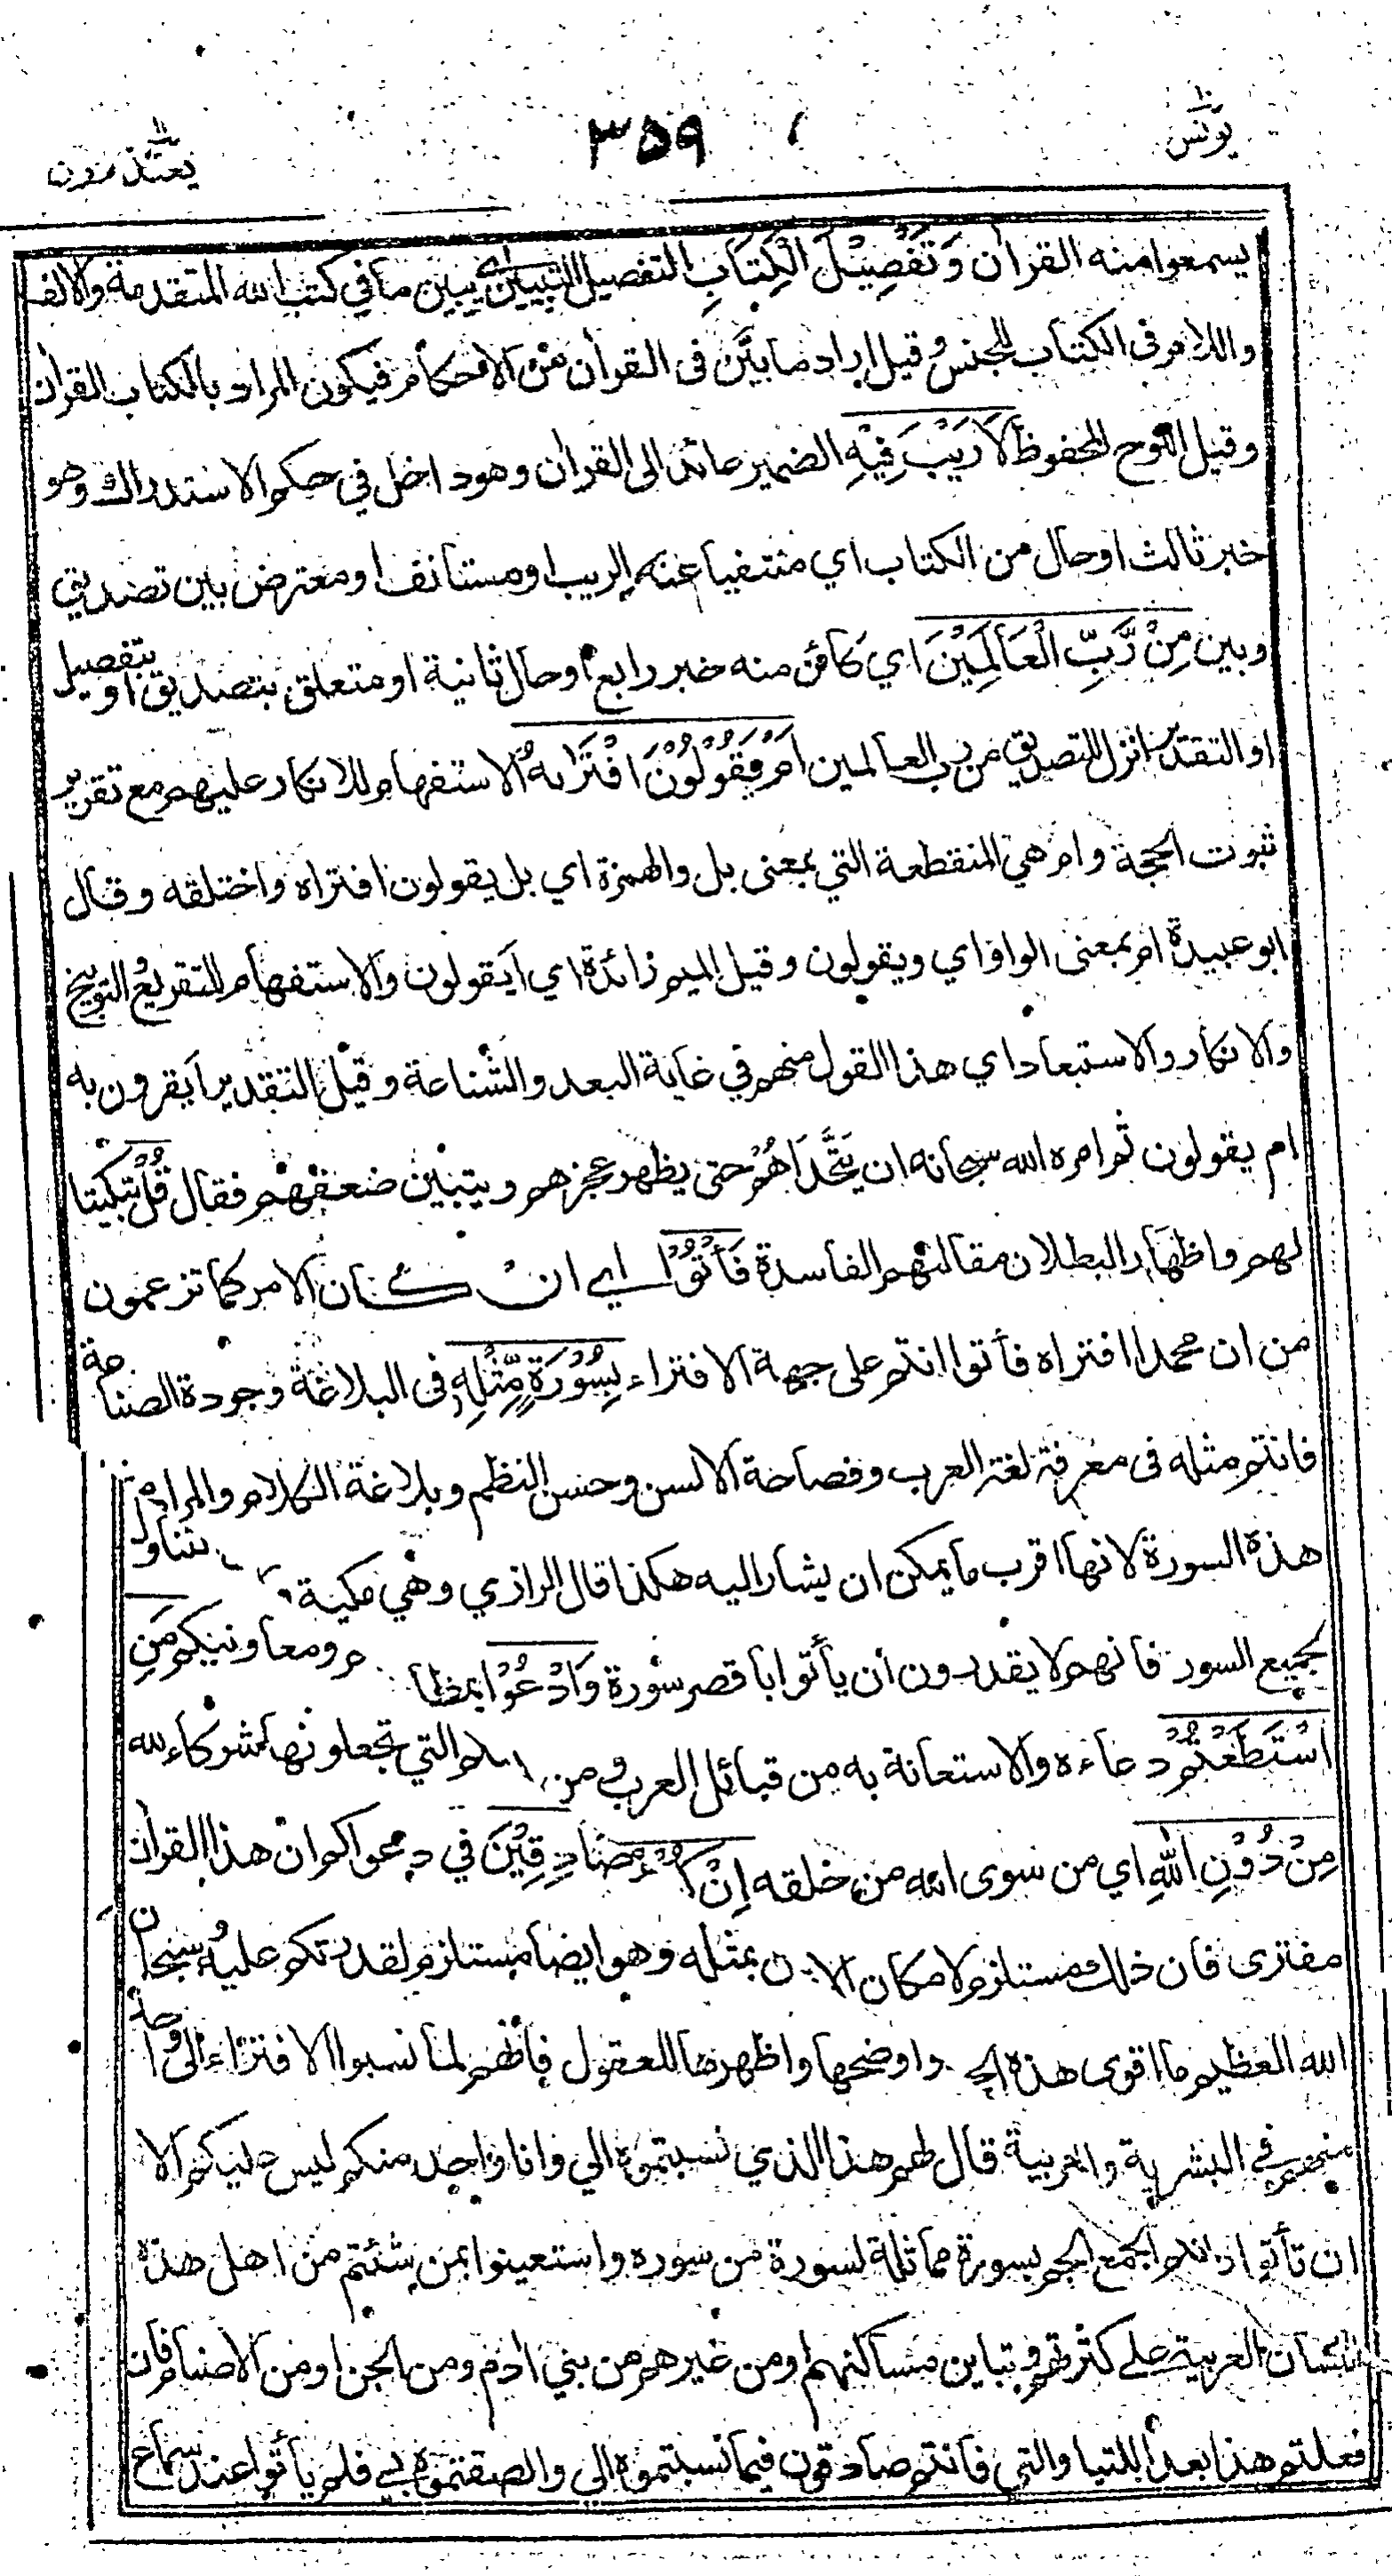 يونس ١٠
٣٥٩
يعتذرون ١١
يسمعوا منه القرآن وَتَفْصِيْلَ الْكِتَابِ التفصيل التبيين اي يبين ما في كتب الله المتقدمة والالف
واللام في الكتاب للجنس وقيل اراد ما بيّن في القرآن من الاحكام فيكون المراد بالكتاب القرآن
وقيل اللوح المحفوظ لَا رَيْبَ فِيْهِ الضمير عائد الى القرآن وهو داخل في حكم الاستدراك وهو
خبر ثالث او حال من الكتاب اي منتفيا عنه الريب او مستانف او معترض بين تصديق
وبين مِنْ رَّبِّ الْعَالَمِيْنَ اي كائن منه خبر رابع او حال ثانية او متعلق بتصديق او بتفصيل
او التقدير انزل للتصديق من رب العالمين اَمْ يَقُوْلُوْنَ افْتَرَاهُ الاستفهام للانكار عليهم مع تقرير
ثبوت الحجة وام هي المنقطعة التي بمعنى بل والهمزة اي بل يقولون افتراه واختلقه وقال
ابو عبيدة ام بمعنى الواو اي ويقولون وقيل الميم زائدة اي أيقولون والاستفهام للتقريع والتوبيخ
والانكار والاستبعاد اي هذا القول منهم في غاية البعد والشناعة وقيل التقدير أيقرون به
ام يقولون ثم امره الله سبحانه ان يتحداهم حتى يظهر عجزهم ويتبين ضعفهم فقال قُلْ تبكيتا
لهم واظهارا لبطلان مقالتهم الفاسدة فَأْتُوْا اي ان كان الامر كما تزعمون
من ان محمدا افتراه فأتوا انتم على جهة الافتراء بِسُوْرَةٍ مِّثْلِهِ في البلاغة وجودة الصناعة
فانتم مثله في معرفة لغة العرب وفصاحة الالسن وحسن النظم وبلاغة الكلام والمراد
هذه السورة لانها اقرب ما يمكن ان يشار اليه هكذا قال الرازي وهي مكية تتناول
لجميع السور فانهم لا يقدرون أن يأتوا باقصر سورة وَادْعُوْا ومعاونيكم مَنِ
اسْتَطَعْتُمْ دعاءه والاستعانة به من قبائل العرب ومن التي تجعلونها شركاء لله
مِنْ دُوْنِ اللهِ اي من سوى الله من خلقه إِنْ كُنْتُمْ صَادِقِيْنَ في دعواكم ان هذا القرآن
مفترى فان ذلك مستلزم لامكان بمثله وهو ايضا مستلزم لقدرتكم عليه وسبحان
الله العظيم ما اقوى هذه واوضحها واظهرها للعقول فانهم لما نسبوا الافتراء الى واحد
منهم في البشرية والعربية قال لهم هذا الذي نسبتموه الي وانا واحد منكم ليس عليكم الا
ان تأتوا بسورة مماثلة لسورة من سوره واستعينوا بمن شئتم من اهل هذه
اللسان العربية على كثرتهم وتباين مساكنهم او من غيرهم من بني آدم ومن الجن او من الاصنام فان
فعلتم هذا بعد اللتيا والتي فانتم صادقون فيما نسبتموه الي والصقتموه بي فلم يأتوا عند سماع